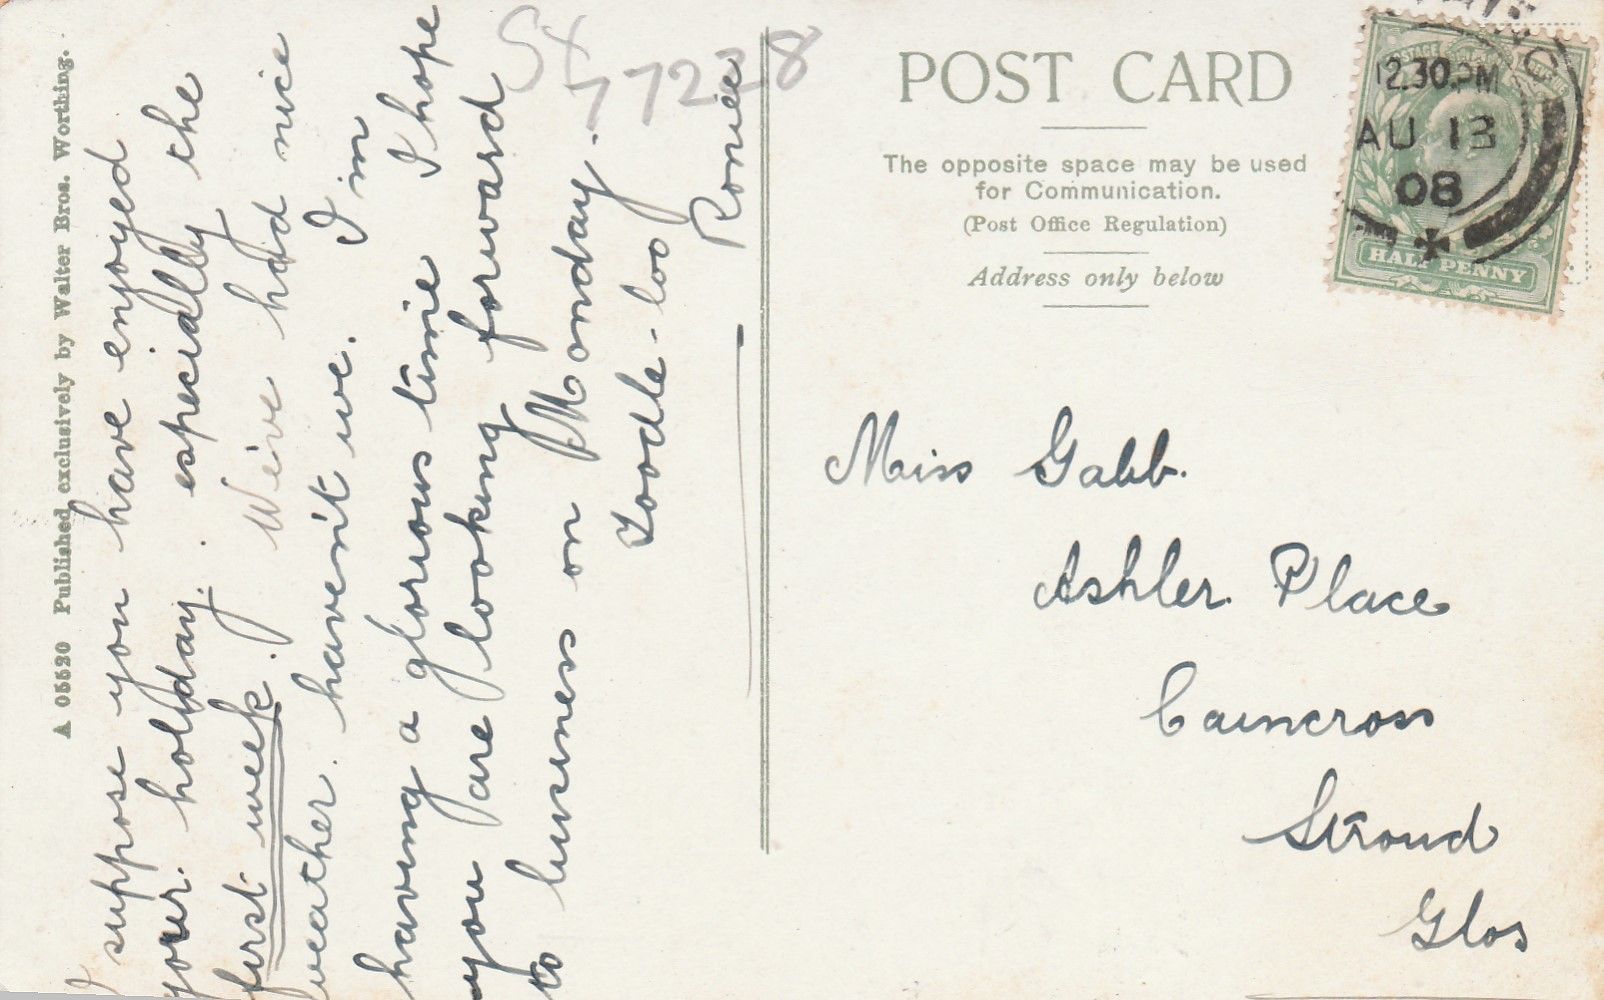 ▲ 05520 Published exclusively by Walter Bros. Worthing.
I suppose you have enjoyed
your holiday. especially the
first week. We've had nice
weather haven't we. I'm
having a glorious time I hope
you are looking forward
to business on Monday.
Toodle-loo
77228
POST CARD
The opposite space may be used
for Communication.
(Post Office Regulation)
Address only below
POSTAGE
12.30 PM
AU 13
08
HALF PENNY
Miss Gabb.
Ashler Place
Caincross
Stroud
Glos